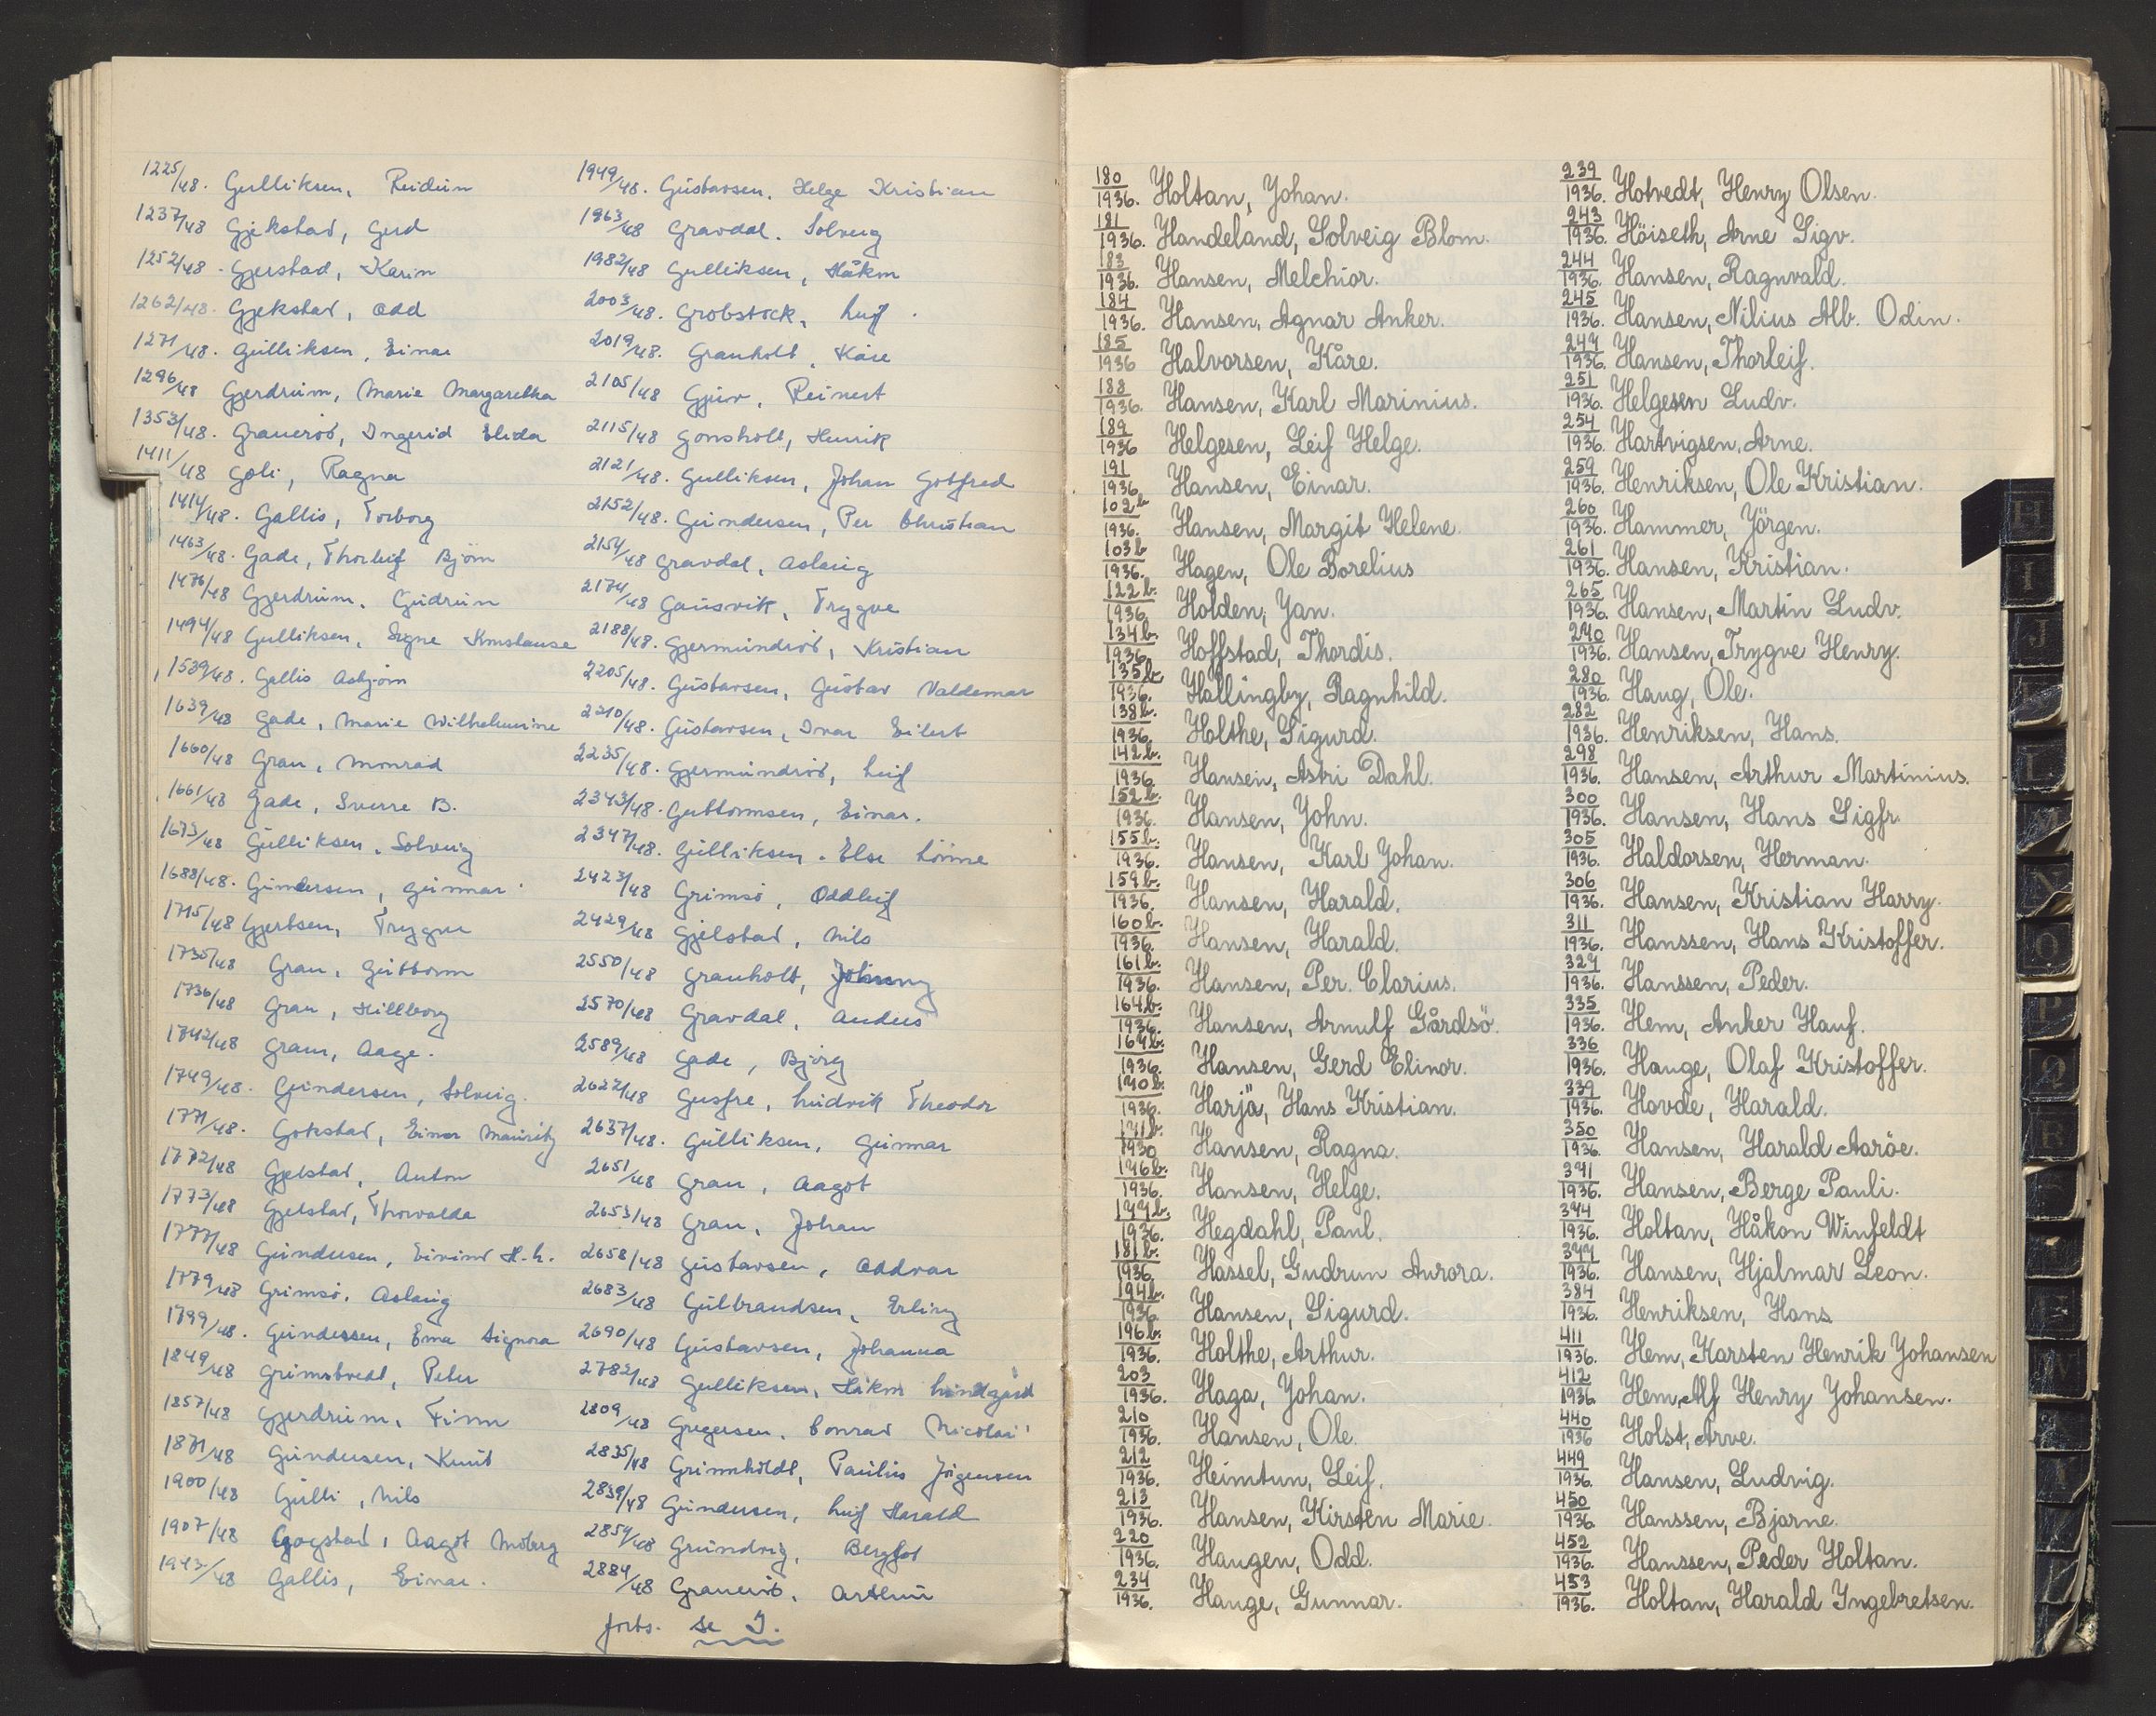 1225/48. Gulliksen, Reidun
1237/48 Gjekstad, Gerd
1252/48. Gjerstad, Karin
1262/48. Gjekstad, Odd
1271/48. Gulliksen, Einar
1296/48 Gjerdrum, Marie Margaretha
1353/48. Grauerød, Ingerid Elida
1411/48 Goli, Ragna
1414/48. Gallis, Torborg
1463/48. Gade, Thorleif Bjørn
1476/48 Gjerdrum, Gudrun
1494/48 Gulliksen, Signe Konstanse
1539/48. Gallis Asbjørn
1639/48 Gade, Marie Wilhelmine
1660/48 Gran, Monrad
1661/48 Gade, Sverre B.
1673/48 Gulliksen, Solveig
1688/48. Gundersen, Gunnar
1715/48 Gjertsen, Trygve
1735/48 Gran, Guttorm
1736/48 Gran, Hillborg
1742/48 Gram, Aage.
1749/48. Gundersen, Solveig.
1771/48. Gokstad, Einar Mauritz
1772/48 Gjelstad, Anton
1773/48 Gjelstad, Thorvalda
1777/48 Gundersen, Eivind H. L.
1779/48 Grimsø, Aslaug
1799/48. Gundersen, Ema Signora
1849/48 Grimstvedt, Peter
1857/48 Gjerdrum, Finn
1871/48 Gundersen, Knut
1900/48 Gulli, Nils
1907/48 Gogstad, Aagot Moberg
1943/48 Gallis, Einar.
1949/48. Gustavsen, Helge Kristian
1963/48 Gravdal. Solveig
1982/48 Gulliksen, Håkon
2003/48. Grobstock, Leif.
2019/48. Granholt, Kåre
2105/48 Gjuv, Reinert
2115/48 Gonsholt, Henrik
2121/48. Gulliksen, Johan Gotfred
2152/48. Gundersen, Per Christian
2154/48 Gravdal, Aslaug
2174/48 Gausvik, Trygve
2188/48. Gjermundrød, Kristian
2205/48. Gustavsen, Gustav Valdemar
2210/48. Gustavsen, Ivar Eilert
2235/48. Gjermundrød, Leif
2343/48. Guttormsen, Einar.
2347/48. Gulliksen. Else
2423/48 Grimsø, Oddleif
2429/48 Gjelstad, Nils
2550/48 Granholt, Johnny
2570/48 Gravdal, Anders
2589/48 Gade, Bjørg
2622/48 Gusfre, Ludvik Theodor
2637/48. Gulliksen, Gunnar
2651/48 Gran, Aagot
2653/48 Gran, Johan
2658/48 Gustavsen, Oddvar
2683/48 Gulbrandsen, Erling
2690/48 Gustavsen, Johanna
2782/48 Gulliksen, Håkon Lindgård
2809/48 Gregersen, Conrad Nicolai
2835/48 Grimholdt, Paulus Jörgensen
2839/48 Gundersen, Leif Harald
2859/48 Grundvig, Bergljot
2884/48 Grauerød, Arthur
forts. se I.
180/1936. Holtan, Johan.
181/1936. Handeland, Solveig Blom.
183/1936. Hansen, Melchior.
184/1936. Hansen, Agnar Anker.
185/1936 Halvorsen, Kåre.
188/1936. Hansen, Karl Marinius.
189/1936 Helgesen, Leif Helge.
191/1936. Hansen, Einar.
102b/1936. Hansen, Margit Helene.
103b/1936. Hagen, Ole Borelius
122b./1936. Holden, Jan.
134b./1936. Hoffstad, Thordis.
135b./1936. Hallingby, Ragnhild.
138b./1936. Holthe, Sigurd.
142b./1936. Hansen, Astri Dahl.
152b./1936. Hansen, John.
155b./1936. Hansen, Karl Johan.
159b./1936. Hansen, Harald.
160b./1936. Hansen, Harald.
161b./1936. Hansen, Per. Clarius.
164b./1936. Hansen, Arnulf Gårdsö.
167b./1936. Hansen, Gerd Elinor.
170b./1936. Harjä, Hans Kristian.
171b./1930 Hansen, Ragna.
176b./1936. Hansen, Helge.
177b./1936. Hegdahl, Paul.
181b./1936. Hassel, Gudrun Aurora.
194b./1936. Hansen, Sigurd.
196b./1936. Holthe, Arthur.
203/1936. Haga, Johan.
210/1936. Hansen, Ole.
212/1936. Heimtun, Leif.
213/1936. Hansen, Kirsten Marie.
220/1936. Haugen, Odd.
234/1936. Hauge, Gunnar.
239/1936. Hotvedt, Henry Olsen.
243/1936. Höiseth, Arne Sigv.
244/1936. Hansen, Ragnvald.
245/1936. Hansen, Nilius Alb. Odin.
247/1936. Hansen, Thorleif.
251/1936. Helgesen Ludv.
254/1936. Hartvigsen, Arne.
259/1936. Henriksen, Ole Kristian.
260/1936. Hammer, Jörgen.
261/1936. Hansen, Kristian.
265/1936. Hansen, Martin Ludv.
270/1936. Hansen, Trygve Henry.
280/1936. Haug, Ole.
282/1936. Henriksen, Hans.
298/1936. Hansen, Arthur Martinius.
300/1936. Hansen, Hans Sigfr.
305/1936. Haldorsen, Herman.
306/1936. Hansen, Kristian Harry.
311/1936. Hanssen, Hans Kristoffer.
327/1936. Hanssen, Peder.
335/1936. Hem, Anker Hauf.
336/1936. Hauge, Olaf Kristoffer.
339/1936. Hovde, Harald.
350/1936. Hansen, Harald Aaröe.
371/1936. Hansen, Berge Pauli.
374/1936. Holtan, Håkon Winfeldt
377/1936. Hansen, Hjalmar Leon.
384/1936. Henriksen, Hans
411/1936. Hem, Karsten Henrik Johansen
412/1936 Hem, Alf Henry Johansen.
440/1936 Holst, Arve.
449/1936. Hansen, Ludvig.
450/1936. Hanssen, Bjarne.
452/1936. Hanssen, Peder Holtan.
453/1936. Holtan, Harald Ingebretsen.
H
I
J
L
O
P
Q
R